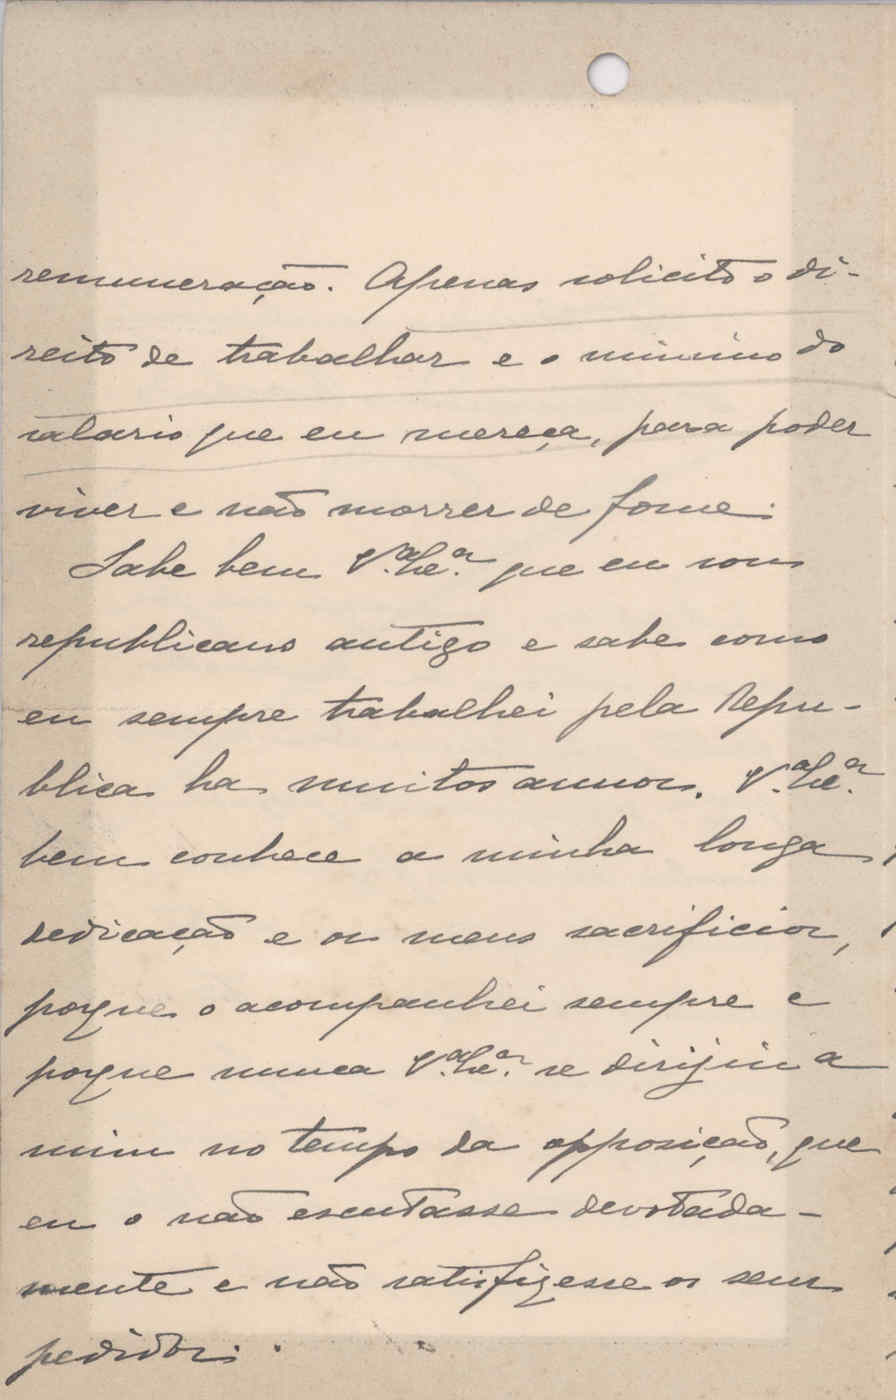 remuneração. Apenas solicito o di-
reito de trabalhar e o minimo do
salario que eu mereça, para poder
viver e não morrer de fome.
Sabe bem V.ª Ex.ª que eu sou
republicano antigo e sabe como
eu sempre trabalhei pela Repu-
blica ha muitos annos. V.ª Ex.ª
bem conhece a minha longa
dedicação e os meus sacrificios,
porque o acompanhei sempre e
porque nunca V.ª Ex.ª se dirijiu a
mim no tempo da opposição, que
eu o não escutasse devotada-
mente e não satisfizesse os seus
pedidos.